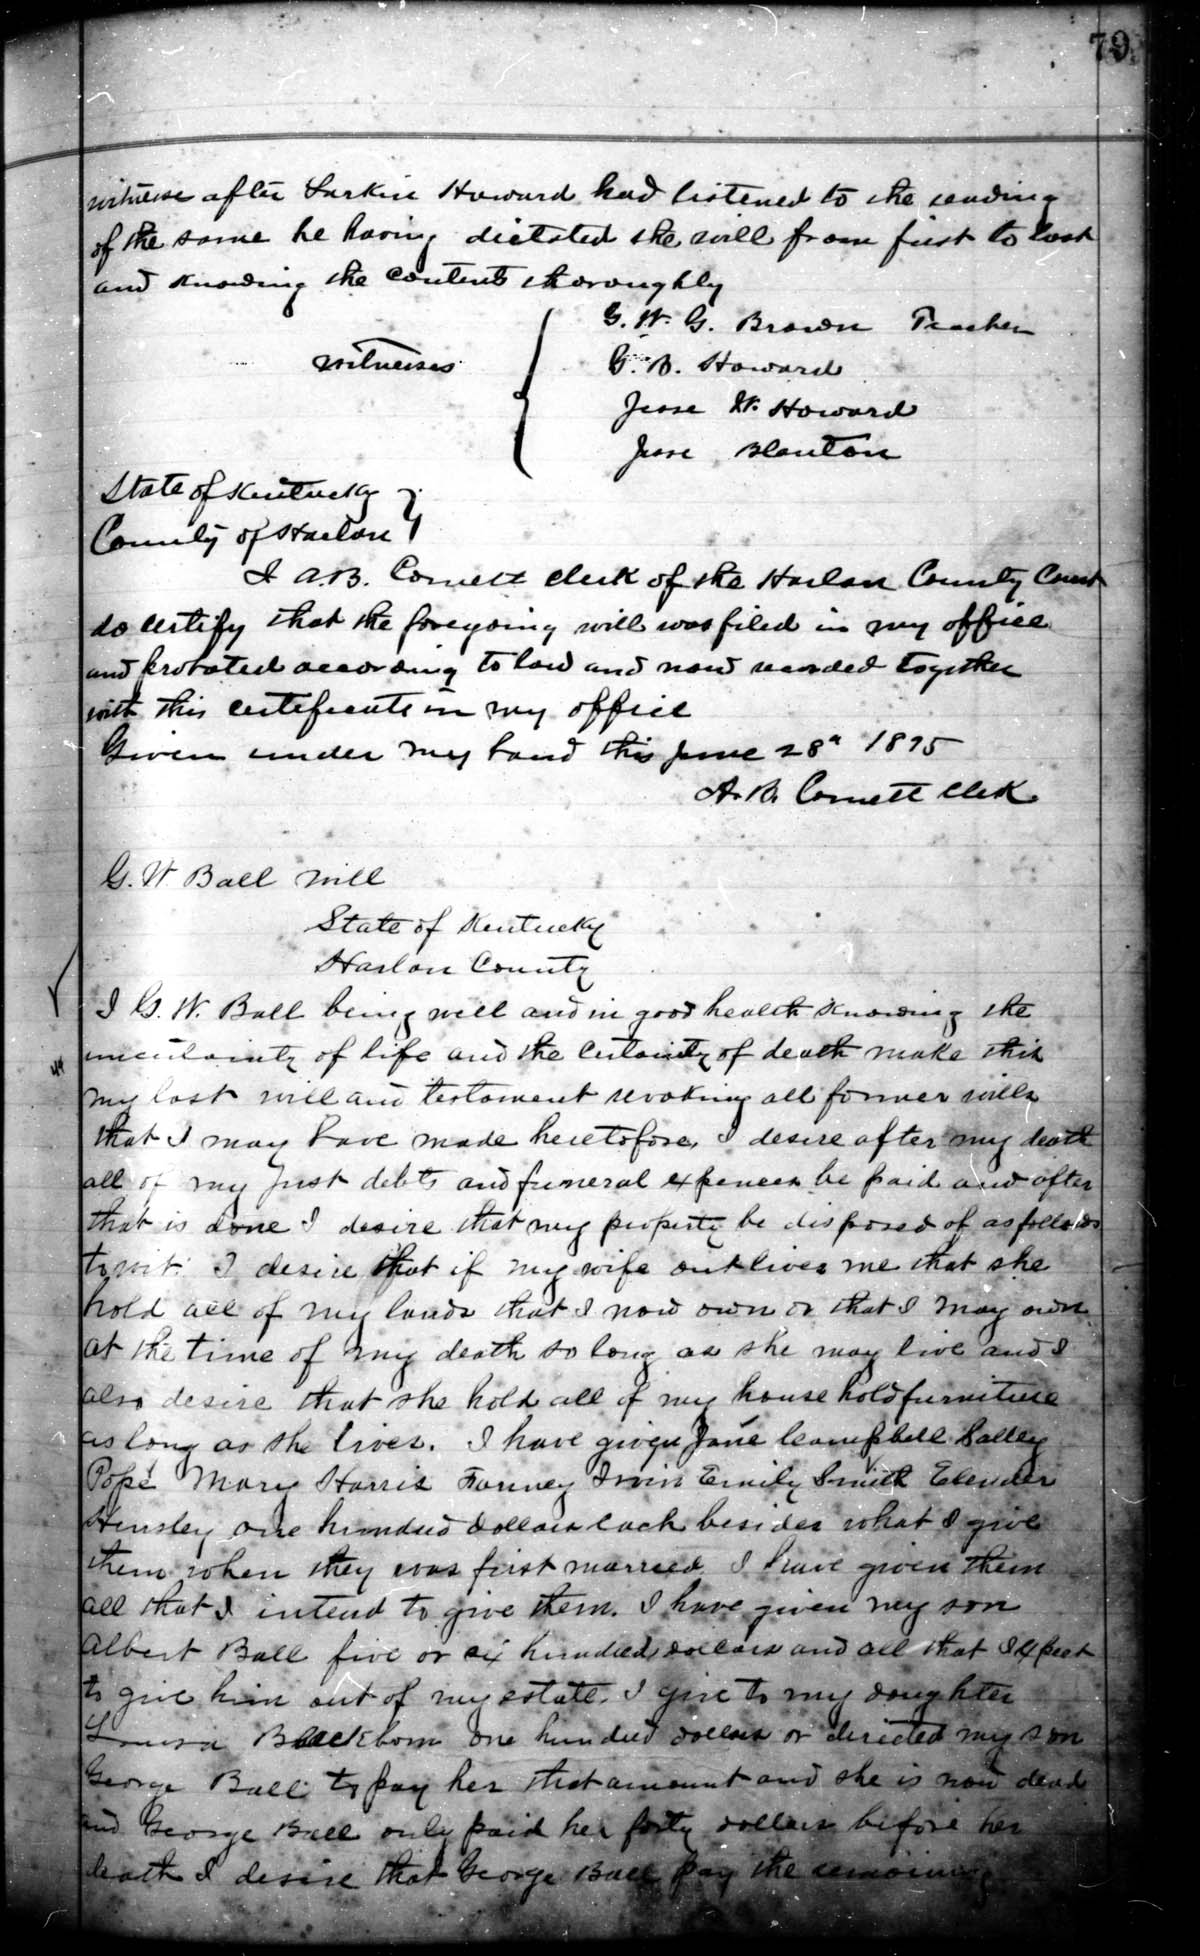 79
witness after Larkin Howard had listened to the reading
of the same he having dictated the will from first to last
and knowing the contents thoroughly
G. W. G. Brown Teacher
witnesses
G. B. Howard
Jesse W. Howard
Jesse Blanton
State of Kentucky
County of Harlan
I A.B. Cornett clerk of the Harlan County Court
do certify that the foregoing will was filed in my office
and probated according to law and now recorded together
with this certificate in my office
Given under my hand this June 28" 1895
A. B. Cornett Clerk
G. W Ball will
State of Kentucky
Harlan County
I G. W. Ball being well and in good health knowing the
uncertainty of life and the certainty of death make this
my last will and testament revoking all former wills
that I may have made heretofore, I desire after my death
all of my just debts and funeral expences be paid and after
that is done I desire that my property be disposed of as follows
towit: I desire that if my wife outlives me that she
hold all of my lands that I now own or that I may own
at the time of my death so long as she may live and I
also desire that she hold all of my house hold furniture
as long as she lives. I have given Jane Campbell Salley
Pope Mary Harris Fanney Irvin Emily Smith Elender
Hensley one hundred dollars each besides what I give
them when they was first married. I have given them
all that I intend to give them. I have given my son
Albert Ball five or six hundred dollars and all that I expect
to give him out of my estate. I give to my daughter
Louisa Blackborn one hundred dollars or directed my son
George Ball to pay her that amount and she is now dead
and George Ball only paid her forty dollars before her
death I desire that George Ball pay the remaining